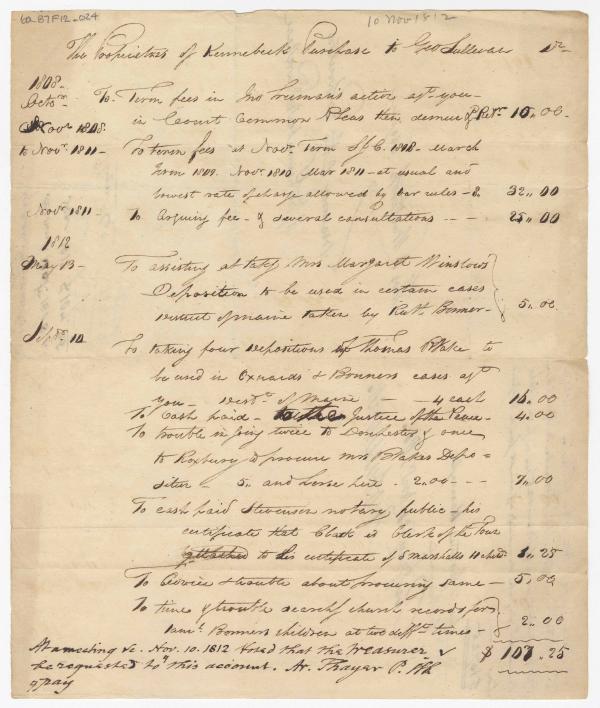 62 B7F12_024
10 Nov 1812
The Proprietors of Kennebeck Purchase to Geo Sullivan Dr
1808
Octo To Term fees in Jno Trueman's action agt you
Nov 1808 in Court Common Pleas then demur 10,,00
to Nov 1811 To term fees at Nov Term S J C 1808 March
Term 1809. Nov 1810 Mar 1811 at usual and
lowest rate of charge allowed by bar rules - 8 32,,00
Nov 1811 - To arguing fee - & several consultations - - - 25,,00
1812
May 13 - To assisting at takg Mrs Margaret Winslow's
Deposition to be used in certain cases
District of maine taken by Bonner - 5,,00
Sept 10 To taking four depositions of Thomas Blake to
be used in & Bonners cases agt
you - Distt of Maine - - 4 each 16.00
To Cash paid - to the Justice of the Peace - 4.00
To trouble in going twice to Dorchester & once
to Roxbury to procure mr Blakes Depo =
sition - 5,, and horse hire - 2.00 - - - 7,,00
To cash paid Stevenson notary public - his
certificate that Clark is Clerk of the Town
attached to his certificate of S marshalls 1,,25
To advice & trouble about procuring same - 5,,00
To time & trouble searchg church records for
Bonners children at two difft times - 2,,00
$ 107,,25
At a meeting &c. Nov. 10. 1812 Voted that the Treasurer
be requested to this account. Ar. Thayer P. Clk
pay